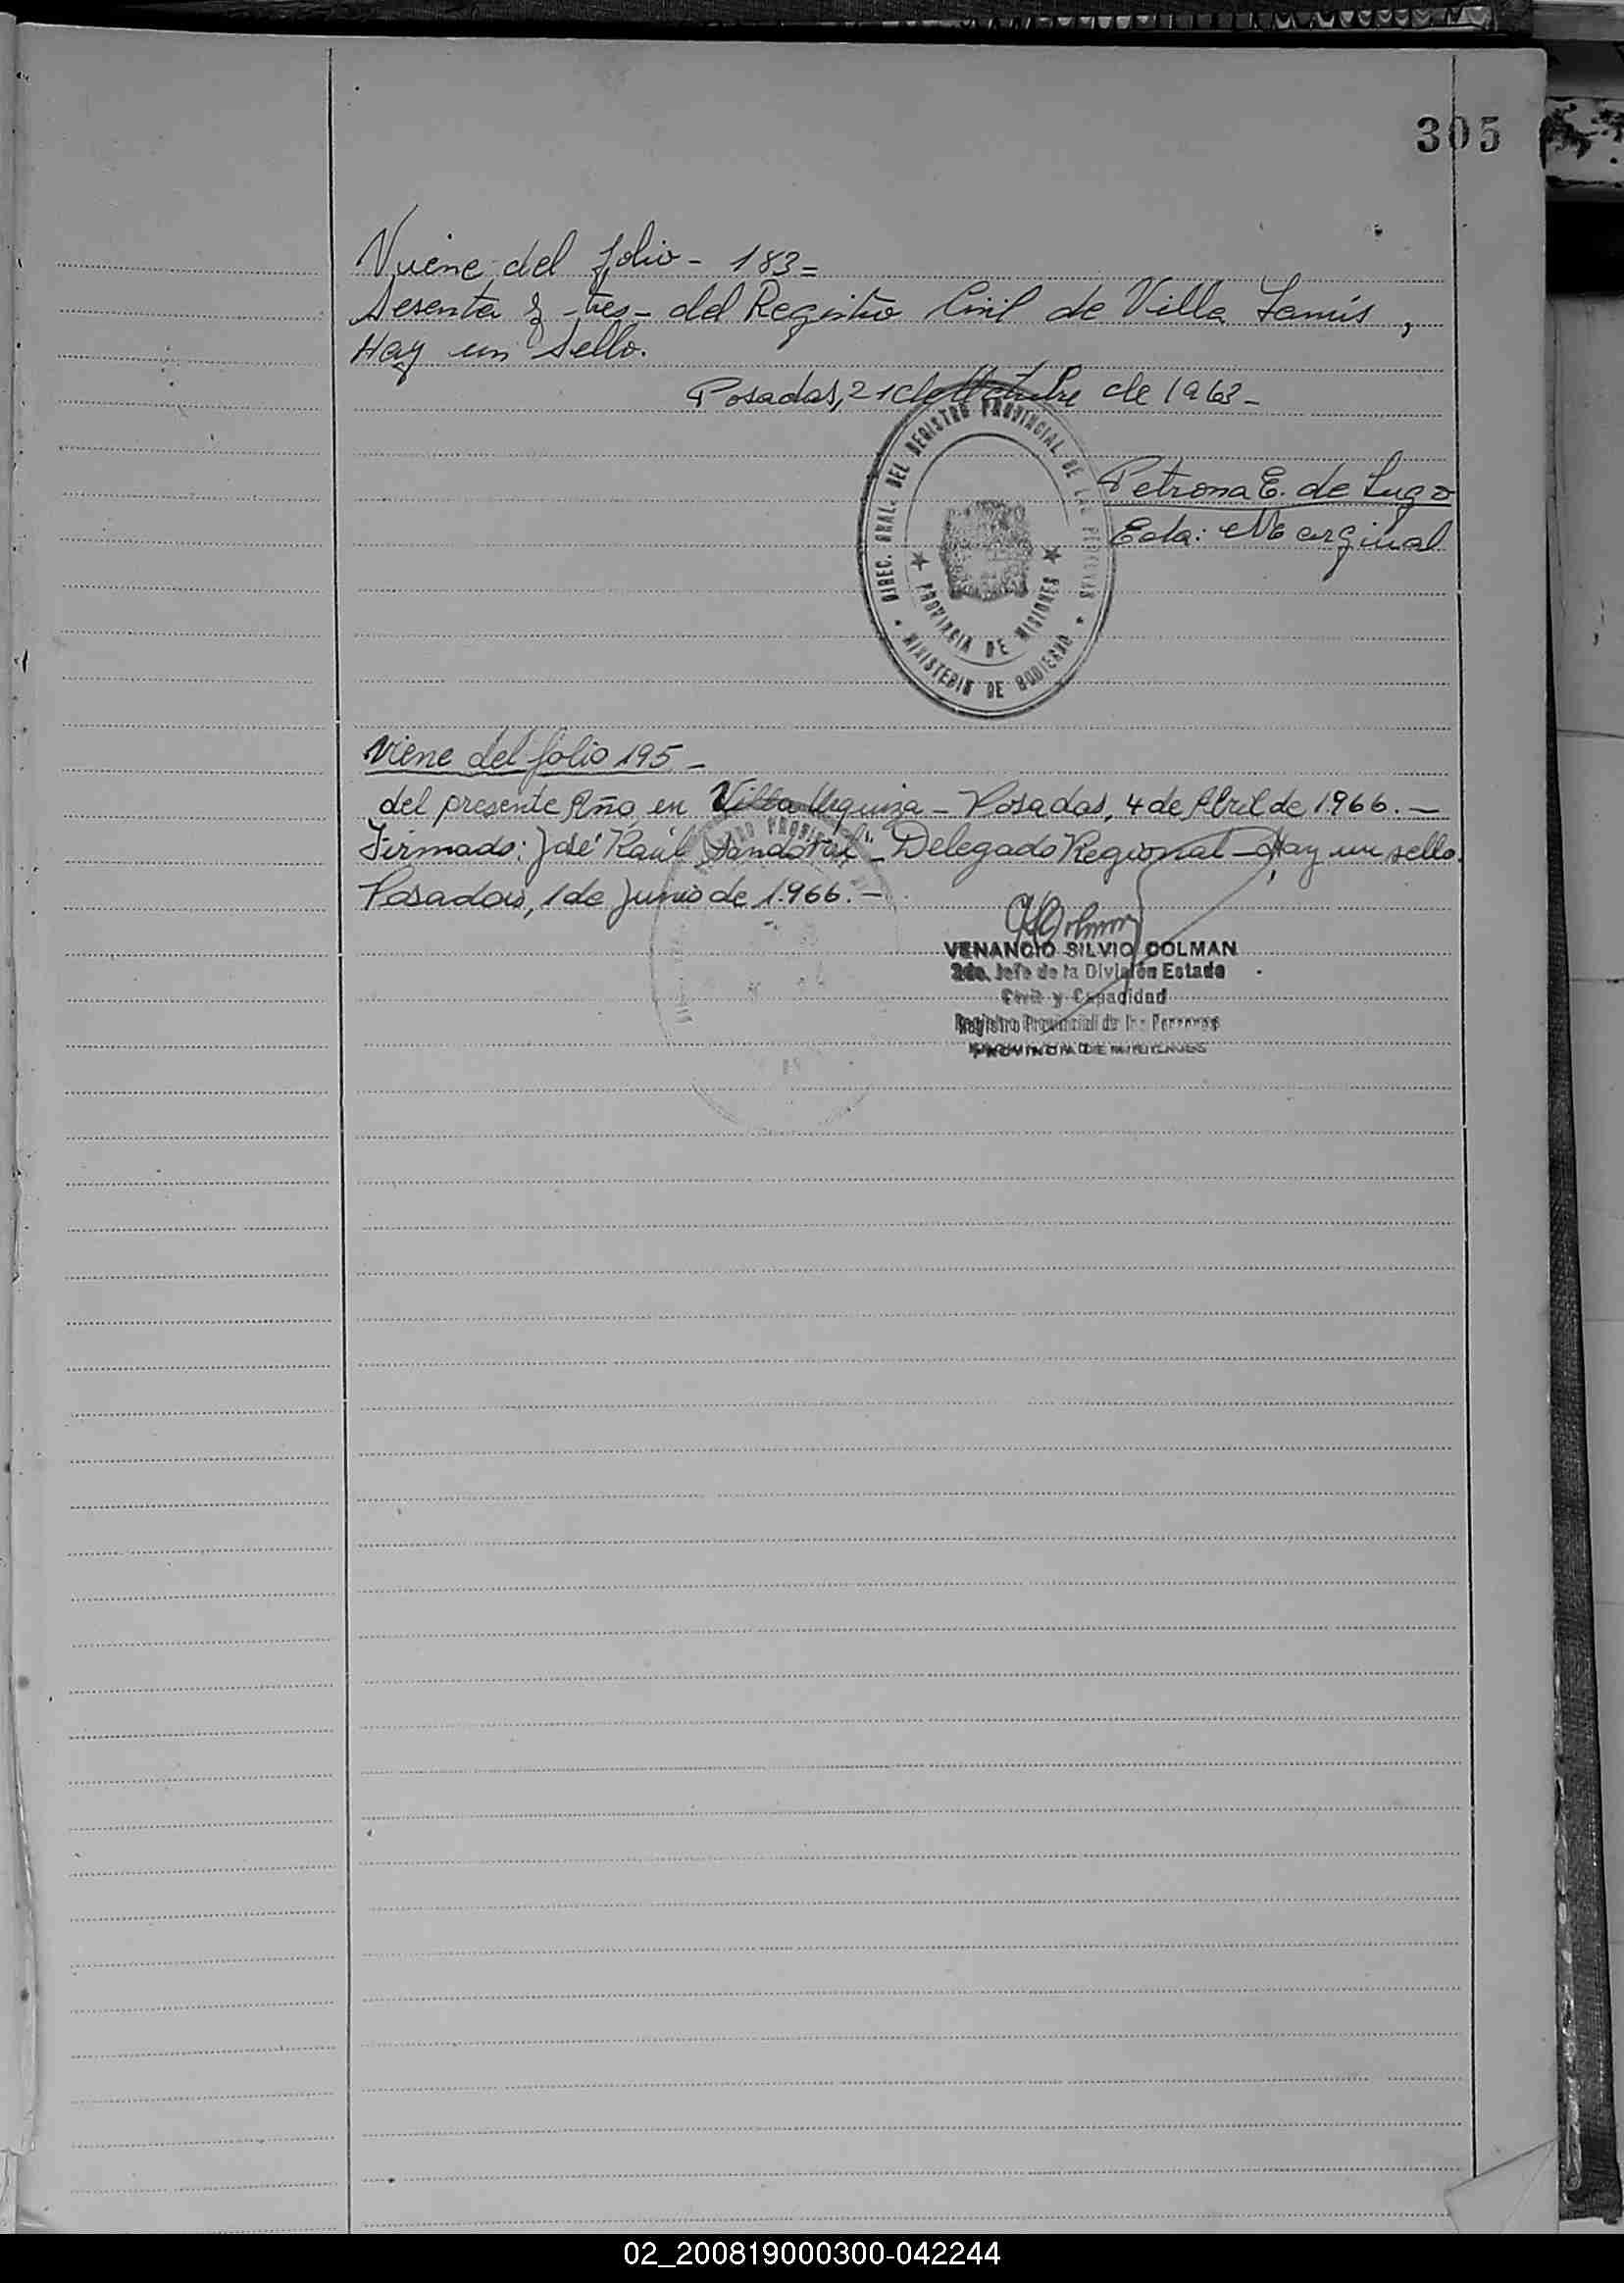 305
Viene del folio - 183=
Sesenta y - tres - del Registro Civil de Villa Lanús,
Hay un sello.
Posadas, 21 de Octubre de 1963-
DIREC. GRAL. DEL REGISTRO PROVINCIAL DE LAS PERSONAS
PROVINCIA DE MISIONES
MINISTERIO DE GOBIERNO
Petrona E. de Lugo
Ecta: Marginal
Viene del folio 195-
del presente Año, en Villa Urquiza - Posadas, 4 de Abril de 1.966.-
Firmado: José Raúl Sandoval"- Delegado Regional - Hay un sello.
Posadas, 1 de Junio de 1.966.-
VENANCIO SILVIO COLMAN
2do. Jefe de la División Estado
Civil y Capacidad
Registro Provincial de las Personas
PROVINCIA DE MISIONES
02_200819000300-042244